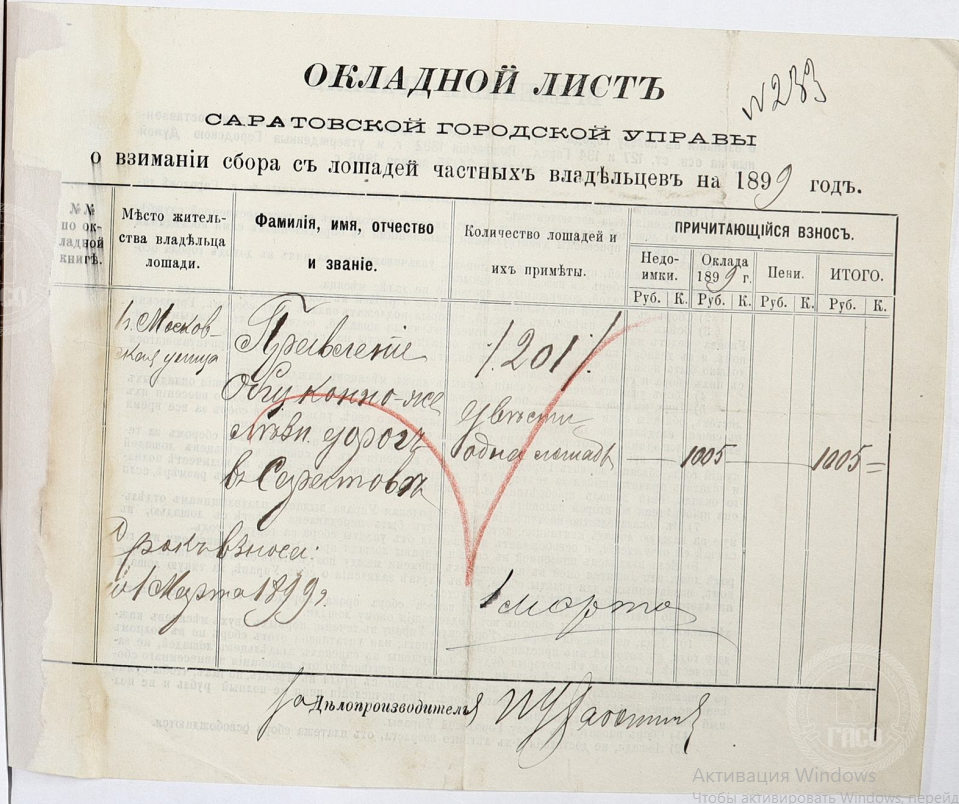 ОКЛАДНОЙ ЛИСТЪ
№ 233
САРАТОВСКОЙ ГОРОДСКОЙ УПРАВЫ
о взиманіи сбора съ лошадей частныхъ владѣльцевъ на 1899 годъ.
№№ по окладной книгѣ.
Мѣсто житель-
ства владѣльца
лошади.
Фамилія, имя, отчество
и званіе.
Количество лошадей и
ихъ примѣты.
ПРИЧИТАЮЩІЙСЯ ВЗНОСЪ.
Недо-
имки.
Оклада
1899 г.
Пени.
ИТОГО.
Руб. К. Руб. К. Руб. К. Руб. К.
Москов-
ская улица
Правленіе
Общ конно-же
лѣзн. дорогъ
въ Саратовѣ
201
двѣсти
одна лошадь
1005
1005 =
Срокъ взноса:
1 Марта 1899 г.
1 марта
за Дѣлопроизводителя
ГАСО
Активация Windows
Чтобы активировать Windows, перейд